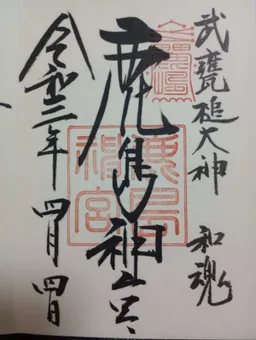 武甕槌大神 和魂
鹿島神宮
鹿島
神宮
令和三年 四月四日